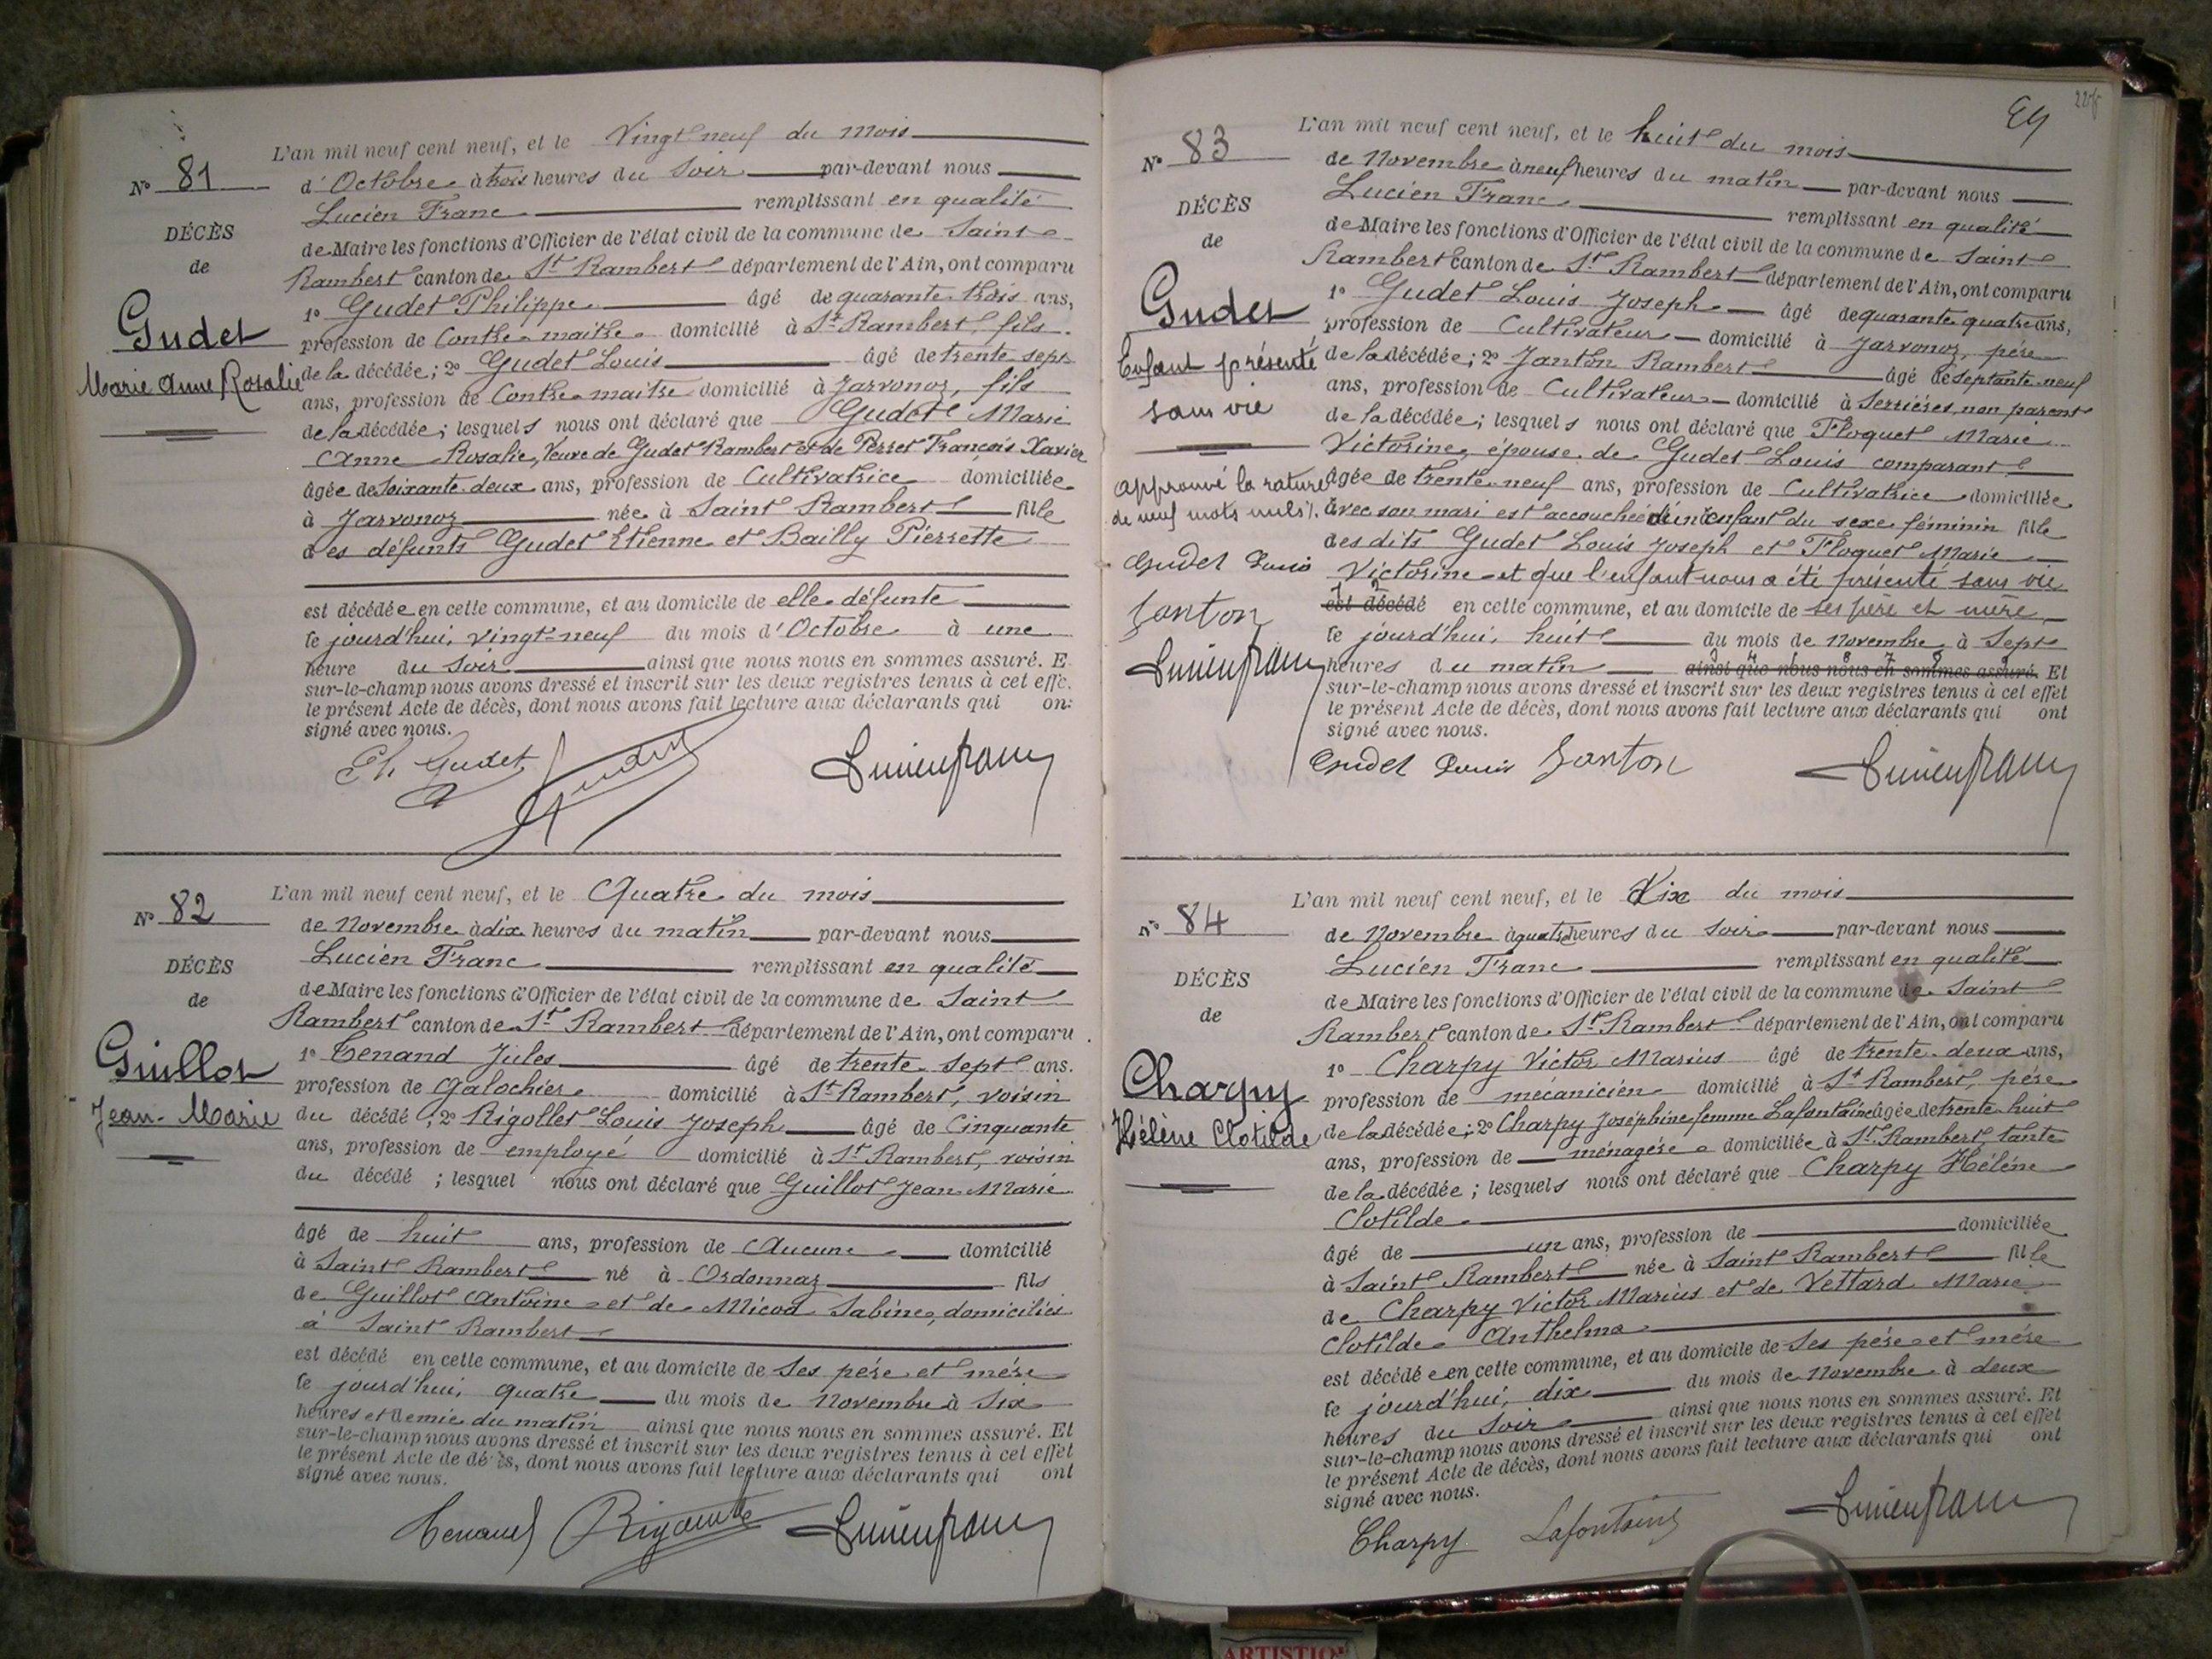 L'an mil neuf cent neuf, et le Vingt neuf du mois
N° 81
d'Octobre à trois heures du soir par-devant nous
Lucien Franc remplissant en qualité
DÉCÈS
de Maire les fonctions d'Officier de l'état civil de la commune de Saint
de
Rambert canton de St Rambert département de l'Ain, ont comparu
1° Gudet Philippe âgé de quarante trois ans,
Gudet
profession de Contre-maître domicilié à St Rambert, fils
Marie Anne Rosalie
de la décédée; 2° Gudet Louis âgé de trente sept
ans, profession de Contre-maitre domicilié à Javronoz, fils
de la décédée; lesquels nous ont déclaré que Gudet Marie
Anne Rosalie, Veuve de Gudet Rambert et de Perret François Xavier
âgée de soixante deux ans, profession de Cultivatrice domiciliée
à Javronoz née à Saint Rambert fille
des défunts Gudet Etienne et Bailly Pierrette
est décédée en cette commune, et au domicile de elle défunte
le jourd'hui, vingt-neuf du mois d'Octobre à une
heure du soir ainsi que nous nous en sommes assuré. E
sur-le-champ nous avons dressé et inscrit sur les deux registres tenus à cet effe
le présent Acte de décès, dont nous avons fait lecture aux déclarants qui on
signé avec nous.
Ph Gudet Gudet Lucien franc
L'an mil neuf cent neuf, et le Quatre du mois
N° 82
de Novembre à dix heures du matin par-devant nous
Lucien Franc remplissant en qualité
DÉCÈS
de Maire les fonctions d'Officier de l'état civil de la commune de Saint
de
Rambert canton de St Rambert département de l'Ain, ont comparu
1° Tenand Jules âgé de trente sept ans.
Guillot
profession de galochier domicilié à St Rambert, voisin
Jean-Marie
du décédé, 2° Rigollet Louis Joseph âgé de Cinquante
ans, profession de employé domicilié à St Rambert, voisin
du décédé ; lesquel nous ont déclaré que Guillot Jean Marie
âgé de huit ans, profession de Aucune domicilié
à Saint Rambert né à Ordonnaz fils
de Guillot Antoine et de Micod Sabine, domiciliés
à Saint Rambert
est décédé en cette commune, et au domicile de ses père et mère
le jourd'hui, quatre du mois de Novembre à six
heures et demie du matin ainsi que nous nous en sommes assuré. Et
sur-le-champ nous avons dressé et inscrit sur les deux registres tenus à cet effet
le présent Acte de décès, dont nous avons fait lecture aux déclarants qui ont
signé avec nous.
Tenand Lucien franc
89
L'an mil neuf cent neuf, et le huit du mois
N° 83
de Novembre à neuf heures du matin par-devant nous
Lucien Franc remplissant en qualité
DÉCÈS
de Maire les fonctions d'Officier de l'état civil de la commune de Saint
de
Rambert canton de St Rambert département de l'Ain, ont comparu
1° Gudet Louis Joseph âgé de quarante quatre ans,
Gudet
profession de Cultivateur domicilié à Javronoz, père
Enfant présenté
de la décédée; 2° Janton Rambert âgé de septante neuf
sans vie
ans, profession de Cultivateur domicilié à Serrières, non parent
de la décédée; lesquels nous ont déclaré que Floquet Marie
Victorine, épouse de Gudet Louis comparant
approuvé la rature
âgée de trente-neuf ans, profession de Cultivatrice domiciliée
de neuf mots nuls.
avec son mari est accouchée d'un enfant du sexe féminin fille
des dits Gudet Louis Joseph et Floquet Marie
Gudet Louis
Victorine et que l'enfant nous a été présenté sans vie
Janton
est décédé en cette commune, et au domicile de ses père et mère
le jourd'hui, huit du mois de Novembre à sept
Lucien franc
heures du matin ainsi que nous nous en sommes assuré. Et
sur-le-champ nous avons dressé et inscrit sur les deux registres tenus à cet effet
le présent Acte de décès, dont nous avons fait lecture aux déclarants qui ont
signé avec nous.
Gudet Louis Janton Lucien franc
L'an mil neuf cent neuf, et le Dix du mois
N° 84
de Novembre à quatre heures du soir par-devant nous
Lucien Franc remplissant en qualité
DÉCÈS
de Maire les fonctions d'Officier de l'état civil de la commune de Saint
de
Rambert canton de St Rambert département de l'Ain, ont comparu
1° Charpy Victor Marius âgé de trente-deux ans,
Charpy
profession de mécanicien domicilié à St Rambert, père
Hélène Clotilde
de la décédée; 2° Charpy Joséphine femme Lafontaine âgée de trente huit
ans, profession de ménagère domiciliée à St Rambert, tante
de la décédée; lesquels nous ont déclaré que Charpy Hélène
Clotilde
âgé de un ans, profession de domiciliée
à Saint Rambert née à Saint Rambert fille
de Charpy Victor Marius et de Vettard Marie
Clotilde Anthelma
est décédée en cette commune, et au domicile de ses père et mère
le jourd'hui, dix du mois de Novembre à deux
heures du soir ainsi que nous nous en sommes assuré. Et
sur-le-champ nous avons dressé et inscrit sur les deux registres tenus à cet effet
le présent Acte de décès, dont nous avons fait lecture aux déclarants qui ont
signé avec nous.
Charpy Lafontaine Lucien franc
ARTISTIQ